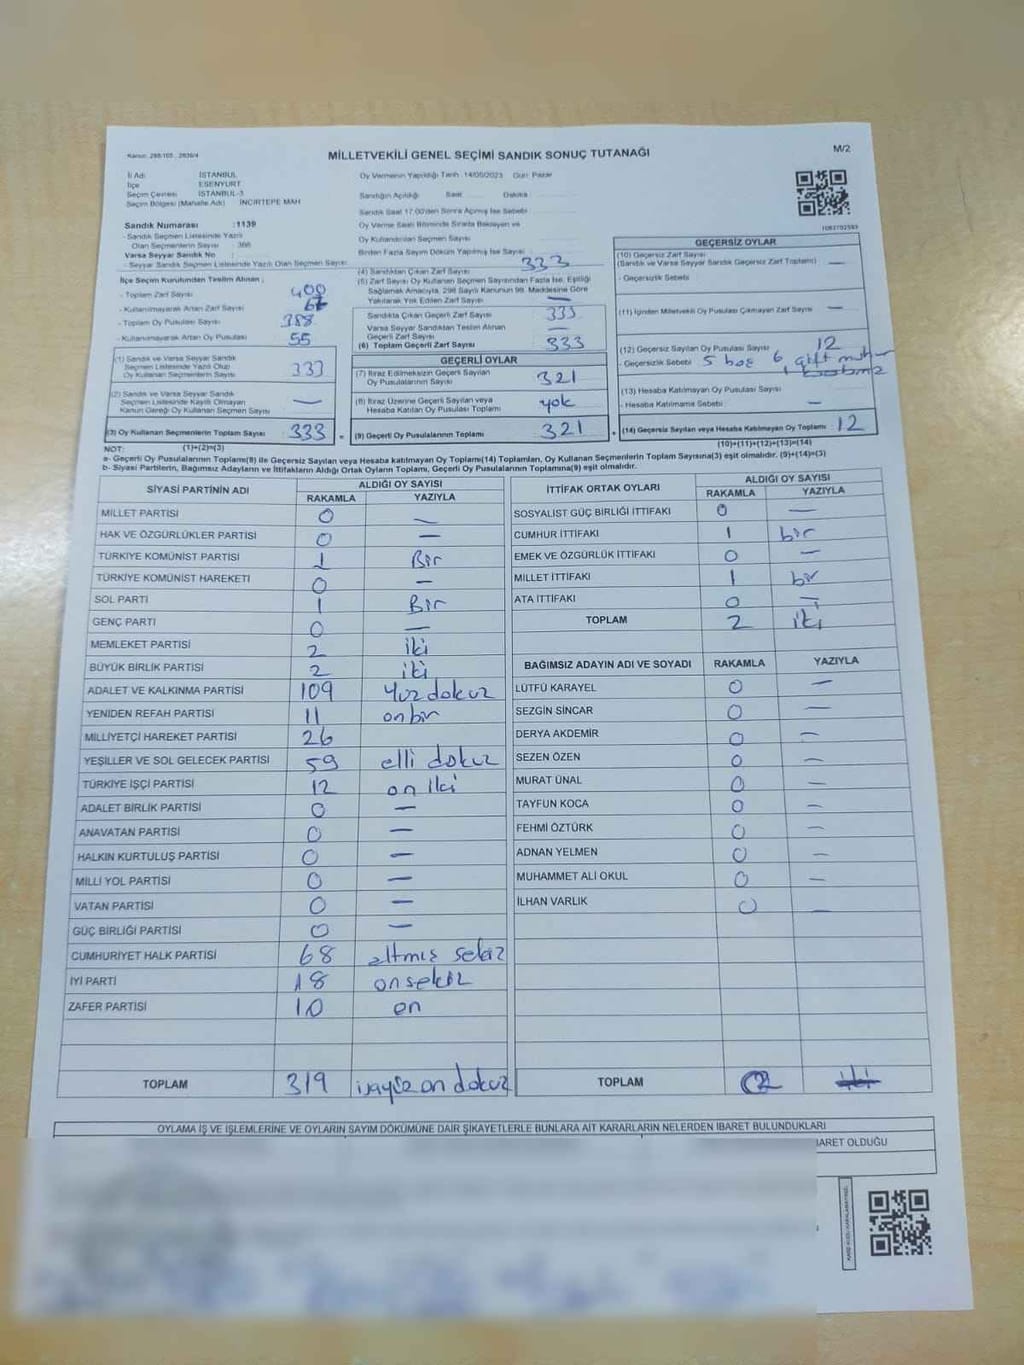 MİLLETVEKİLİ GENEL SEÇİMİ SANDIK SONUÇ TUTANAĞI
M/2
İl Adı : İSTANBUL
İlçe : ESENYURT
Seçim Çevresi : İSTANBUL-3
Seçim Bölgesi (Mahalle Adı) : İNCİRTEPE MAH
Sandık Numarası : 1139
- Sandık Seçmen Listesinde Yazılı
Olan Seçmenlerin Sayısı : 388
Varsa Seyyar Sandık No :
- Seyyar Sandık Seçmen Listesinde Yazılı Olan Seçmen Sayısı:
Oy Vermenin Yapıldığı Tarih :14/05/2023 Gün: Pazar
Sandığın Açıldığı Saat Dakika
Sandık Saat 17.00'den Sonra Açılmış İse Sebebi
Oy Verme Saati Bitiminde Sırada Bekleyen ve
Oy Kullandırılan Seçmen Sayısı
Birden Fazla Sayım Döküm Yapılmış İse Sayısı
İlçe Seçim Kurulundan Teslim Alınan ;
- Toplam Zarf Sayısı 400
- Kullanılmayarak Artan Zarf Sayısı 67
- Toplam Oy Pusulası Sayısı 388
- Kullanılmayarak Artan Oy Pusulası 55
(1) Sandık ve Varsa Seyyar Sandık
Seçmen Listesinde Yazılı Olup
Oy Kullanan Seçmenlerin Sayısı 333
(2) Sandık ve Varsa Seyyar Sandık
Seçmen Listesinde Kayıtlı Olmayan
Kanun Gereği Oy Kullanan Seçmen Sayısı —
(3) Oy Kullanan Seçmenlerin Toplam Sayısı 333
(1)+(2)=(3)
(4) Sandıktan Çıkan Zarf Sayısı 333
(5) Zarf Sayısı Oy Kullanan Seçmen Sayısından Fazla İse, Eşitliği
Sağlamak Amacıyla, 298 Sayılı Kanunun 98. Maddesine Göre
Yakılarak Yok Edilen Zarf Sayısı —
Sandıkta Çıkan Geçerli Zarf Sayısı 333
Varsa Seyyar Sandıktan Teslim Alınan
Geçerli Zarf Sayısı —
(6) Toplam Geçerli Zarf Sayısı 333
GEÇERLİ OYLAR
(7) İtiraz Edilmeksizin Geçerli Sayılan
Oy Pusulalarının Sayısı 321
(8) İtiraz Üzerine Geçerli Sayılan veya
Hesaba Katılan Oy Pusulası Toplamı yok
= (9) Geçerli Oy Pusulalarının Toplamı 321
GEÇERSİZ OYLAR
(10) Geçersiz Zarf Sayısı
(Sandık ve Varsa Seyyar Sandık Geçersiz Zarf Toplamı) —
- Geçersizlik Sebebi
(11) İçinden Milletvekili Oy Pusulası Çıkmayan Zarf Sayısı —
(12) Geçersiz Sayılan Oy Pusulası Sayısı 12
- Geçersizlik Sebebi 5 boş 6 çift mühür
(13) Hesaba Katılmayan Oy Pusulası Sayısı
- Hesaba Katılmama Sebebi —
+ (14) Geçersiz Sayılan veya Hesaba Katılmayan Oy Toplamı 12
(10)+(11)+(12)+(13)=(14)
NOT:
a- Geçerli Oy Pusulalarının Toplamı(9) ile Geçersiz Sayılan veya Hesaba Katılmayan Oy Toplamı(14) Toplamları, Oy Kullanan Seçmenlerin Toplam Sayısına(3) eşit olmalıdır. (9)+(14)=(3)
b- Siyasi Partilerin, Bağımsız Adayların ve İttifakların Aldığı Ortak Oyların Toplamı, Geçerli Oy Pusulalarının Toplamına(9) eşit olmalıdır.
SİYASİ PARTİNİN ADI ALDIĞI OY SAYISI
RAKAMLA YAZIYLA
MİLLET PARTİSİ 0 —
HAK VE ÖZGÜRLÜKLER PARTİSİ 0 —
TÜRKİYE KOMÜNİST PARTİSİ 1 Bir
TÜRKİYE KOMÜNİST HAREKETİ 0 —
SOL PARTİ 1 Bir
GENÇ PARTİ 0 —
MEMLEKET PARTİSİ 2 iki
BÜYÜK BİRLİK PARTİSİ 2 iki
ADALET VE KALKINMA PARTİSİ 109 Yüz dokuz
YENİDEN REFAH PARTİSİ 11 on bir
MİLLİYETÇİ HAREKET PARTİSİ 26
YEŞİLLER VE SOL GELECEK PARTİSİ 59 elli dokuz
TÜRKİYE İŞÇİ PARTİSİ 12 on iki
ADALET BİRLİK PARTİSİ 0 —
ANAVATAN PARTİSİ 0 —
HALKIN KURTULUŞ PARTİSİ 0 —
MİLLİ YOL PARTİSİ 0 —
VATAN PARTİSİ 0 —
GÜÇ BİRLİĞİ PARTİSİ 0 —
CUMHURİYET HALK PARTİSİ 68 altmış sekiz
İYİ PARTİ 18 on sekiz
ZAFER PARTİSİ 10 on
TOPLAM 319 üçyüz on dokuz
İTTİFAK ORTAK OYLARI ALDIĞI OY SAYISI
RAKAMLA YAZIYLA
SOSYALİST GÜÇ BİRLİĞİ İTTİFAKI 0 —
CUMHUR İTTİFAKI 1 bir
EMEK VE ÖZGÜRLÜK İTTİFAKI 0 —
MİLLET İTTİFAKI 1 bir
ATA İTTİFAKI 0 —
TOPLAM 2 iki
BAĞIMSIZ ADAYIN ADI VE SOYADI RAKAMLA YAZIYLA
LÜTFÜ KARAYEL 0 —
SEZGİN SİNCAR 0 —
DERYA AKDEMİR 0 —
SEZEN ÖZEN 0 —
MURAT ÜNAL 0 —
TAYFUN KOCA 0 —
FEHMİ ÖZTÜRK 0 —
ADNAN YELMEN 0 —
MUHAMMET ALİ OKUL 0 —
İLHAN VARLIK 0 —
TOPLAM
OYLAMA İŞ VE İŞLEMLERİNE VE OYLARIN SAYIM DÖKÜMÜNE DAİR ŞİKAYETLERLE BUNLARA AİT KARARLARIN NELERDEN İBARET BULUNDUKLARI
BARET OLDUĞU